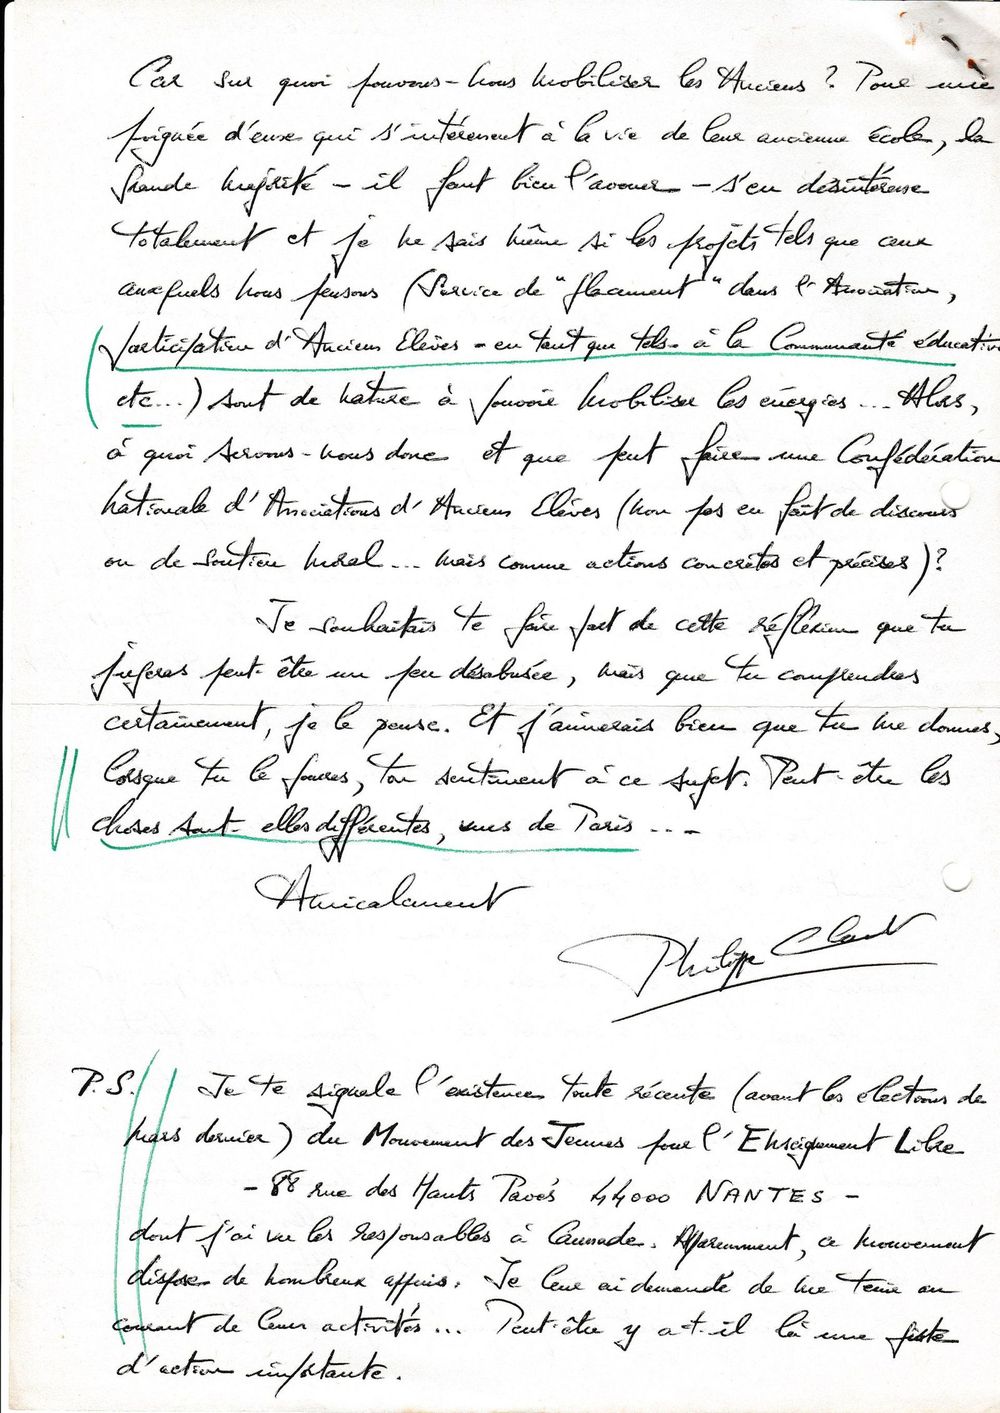 Car sur quoi pouvons-nous mobiliser les Anciens ? Pour une
poignée d'entre qui s'intéressent à la vie de leur ancienne école, la
grande majorité - il faut bien l'avouer - s'en désintéresse
totalement et je ne sais même si les projets tels que ceux
auxquels nous pensons (Service de "placement" dans l'Association,
participation d'Anciens Elèves - en tant que tels - à la Communauté éducative
etc...) sont de nature à pouvoir mobiliser les énergies... Alors,
à quoi servons-nous donc et que peut faire une Confédération
Nationale d'Associations d'Anciens Elèves (non pas en fait de discours
ou de soutien moral... mais comme actions concrètes et précises) ?
Je souhaitais te faire part de cette réflexion que tu
jugeras peut-être un peu désabusée, mais que tu comprendras
certainement, je le pense. Et j'aimerais bien que tu me donnes,
lorsque tu le pourras, ton sentiment à ce sujet. Peut-être les
choses sont-elles différentes, vues de Paris...
Amicalement
Philippe
P.S. Je te signale l'existence toute récente (avant les élections de
mars dernier) du Mouvement des Jeunes pour l'Enseignement Libre
- 88 rue des Hauts Pavés 44000 NANTES -
dont j'ai vu les responsables à . Apparemment, ce mouvement
dispose de nombreux appuis. Je leur ai demandé de me tenir au
courant de leurs activités... Peut-être y a-t-il là une piste
d'action importante.